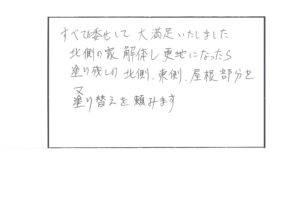 すべてお任せして 大満足いたしました
北側の家 解体し更地になったら
塗り残しの 北側、東側、屋根部分を
又
塗り替えを頼みます